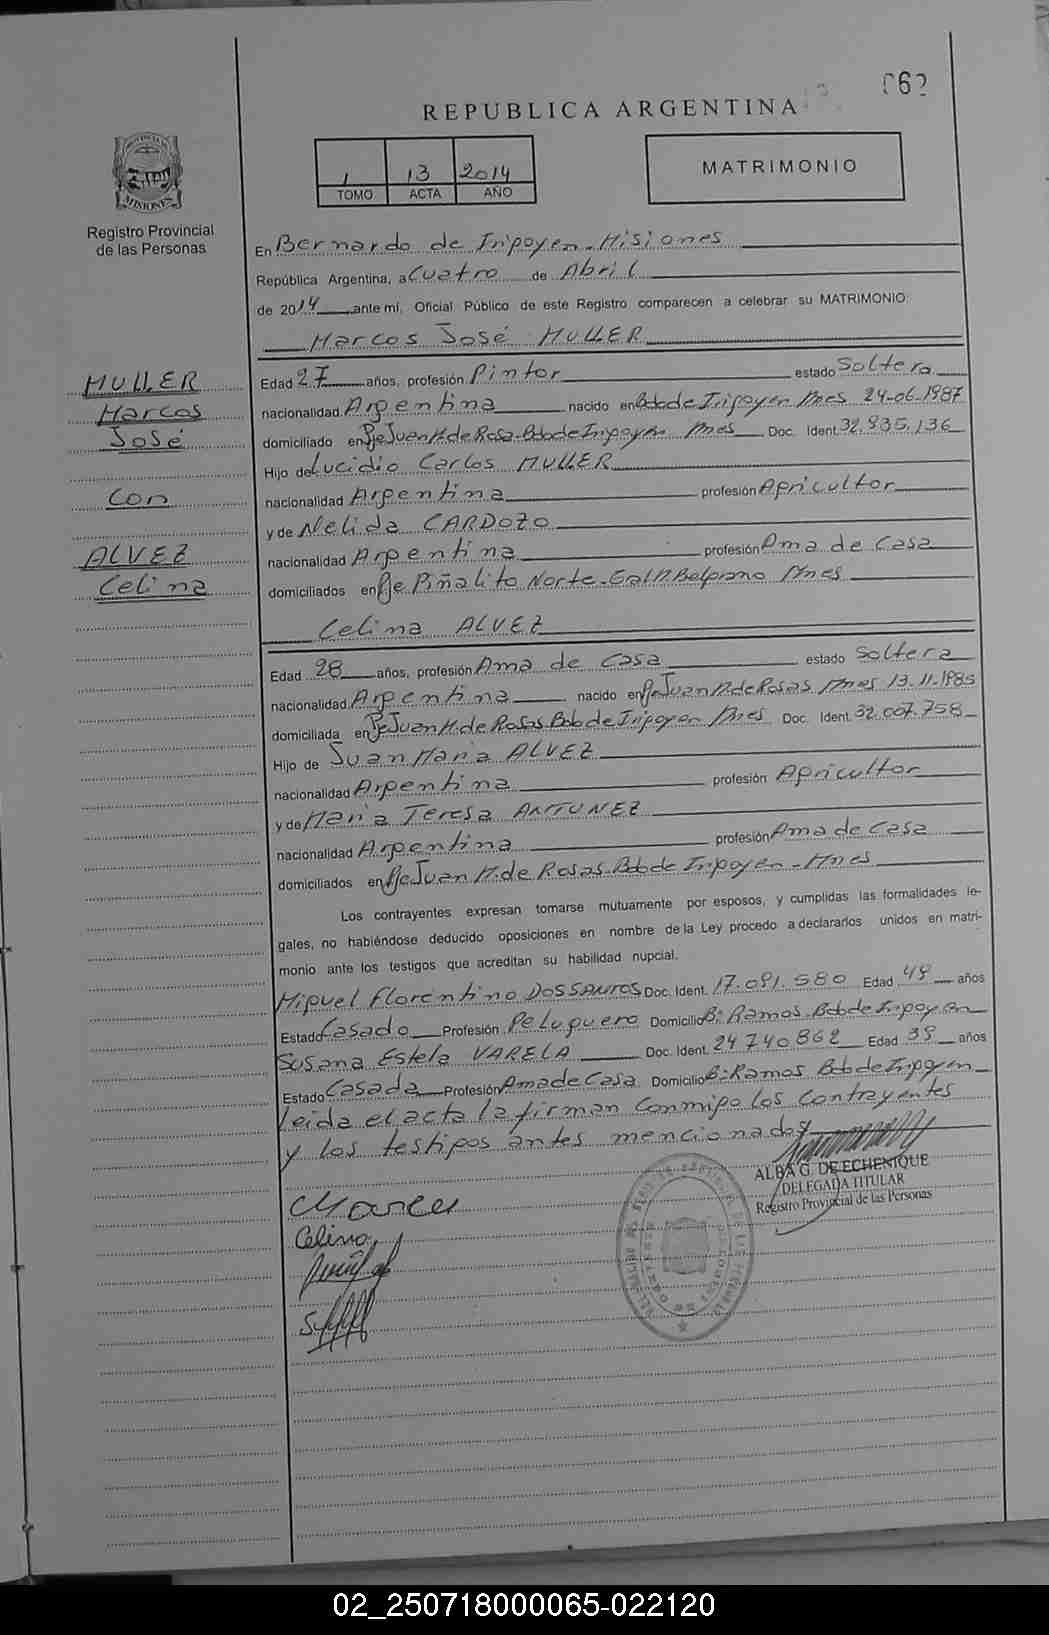 062
REPUBLICA ARGENTINA
PROVINCIA DE
MISIONES
Registro Provincial
de las Personas
1 13 2014
TOMO ACTA AÑO
MATRIMONIO
En Bernardo de Irigoyen - Misiones
República Argentina, a Cuatro de Abril
de 2014 ante mí, Oficial Público de este Registro comparecen a celebrar su MATRIMONIO:
Marcos José MULLER
MULLER
Marcos
José
con
ALVEZ
Celina
Edad 27 años, profesión Pintor estado Soltera
nacionalidad Argentina nacido en Bdo de Irigoyen Mnes 24-06-1987
domiciliado en Pje Juan M. de Rosa - Bdo de Irigoyen Mnes Doc. Ident. 32.935.136
Hijo de Lucidio Carlos MULLER
nacionalidad Argentina profesión Agricultor
y de Nelida CARDOZO
nacionalidad Argentina profesión Ama de Casa
domiciliados en Pje Piñalito Norte - Gral M. Belgrano Mnes
Celina ALVEZ
Edad 28 años, profesión Ama de Casa estado Soltera
nacionalidad Argentina nacido en Pje Juan M. de Rosas Mnes 13.11.1985
domiciliada en Pje Juan M. de Rosas Bdo de Irigoyen Mnes Doc. Ident. 32.007.758
Hijo de Juan Maria ALVEZ
nacionalidad Argentina profesión Agricultor
y de Maria Teresa ANTUNEZ
nacionalidad Argentina profesión Ama de Casa
domiciliados en Pje Juan M. de Rosas - Bdo de Irigoyen - Mnes
Los contrayentes expresan tomarse mutuamente por esposos, y cumplidas las formalidades le-
gales, no habiéndose deducido oposiciones en nombre de la Ley procedo a declararlos unidos en matri-
monio ante los testigos que acreditan su habilidad nupcial.
Miguel Florentino DOSSANTOS Doc. Ident. 17.091.580 Edad 49 años
Estado Casado Profesión Peluquero Domicilio B: Ramos - Bdo de Irigoyen
Susana Estela VARELA Doc. Ident. 24740862 Edad 38 años
Estado Casada Profesión Ama de Casa Domicilio B: Ramos Bdo de Irigoyen
Leida el acta la firman conmigo los contrayentes
y los testigos antes mencionados
ALBA G. DE ECHENIQUE
DELEGADA TITULAR
Registro Provincial de las Personas
Celina
02_250718000065-022120